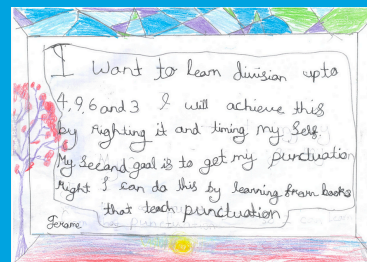 I want to learn division upto
4,9,6 and 3 I will achieve this
by righting it and timing my self.
My second goal is to get my punctuation
right I can do this by learning from books
that teach punctuation
Jerome